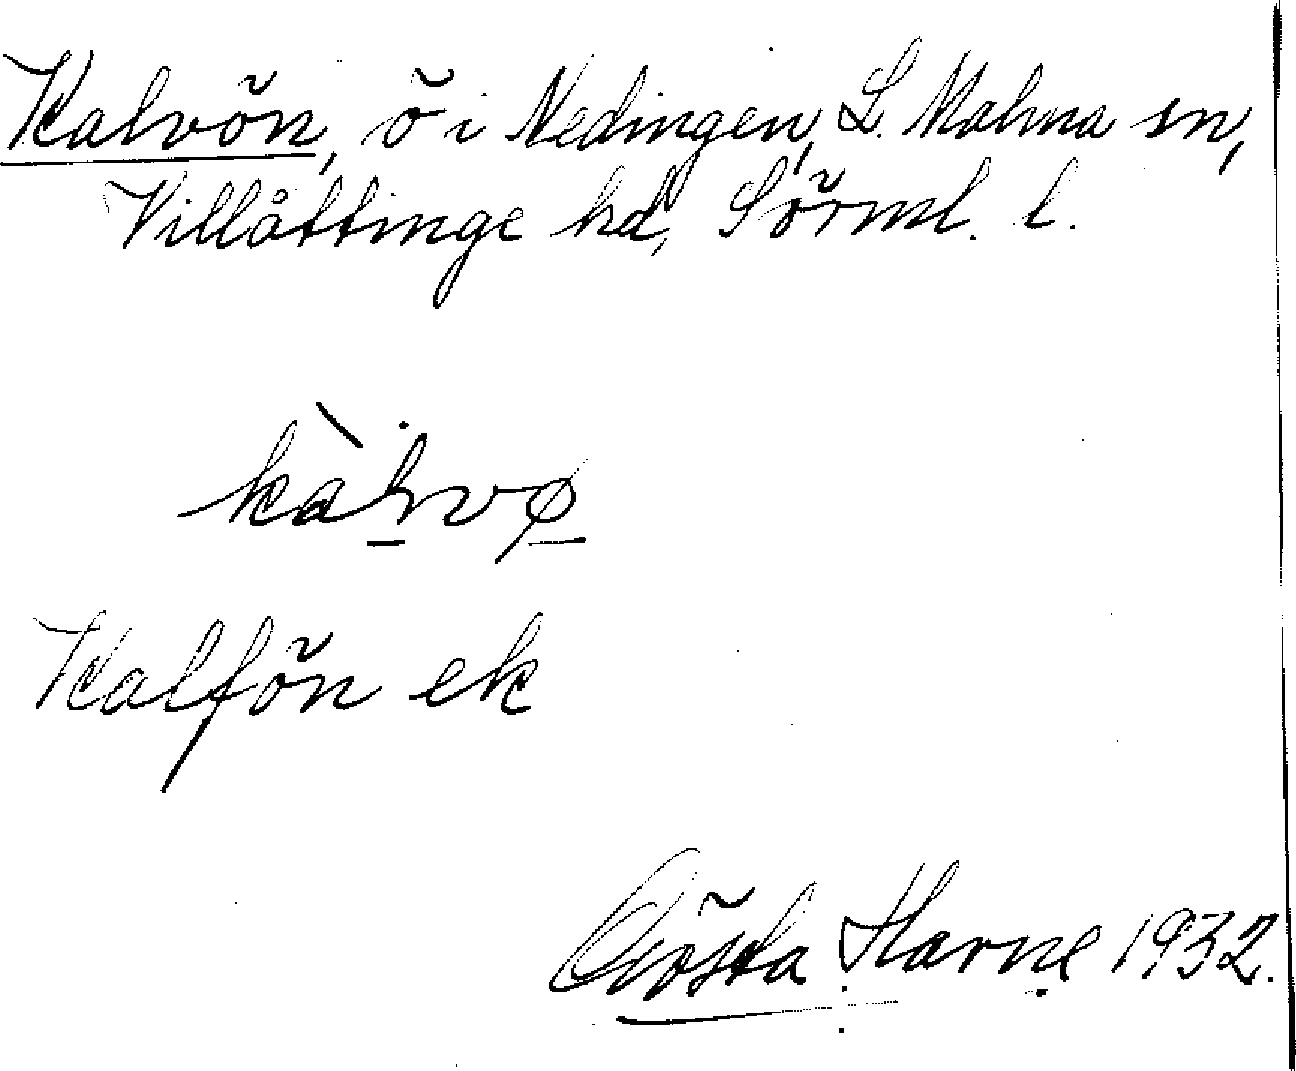 Kalvön, ö i Nedingen, L. Malma sn,
Villåttinge hd, Sörml. l.
kàlvø
Kalfön ek
Gösta Harne 1932.